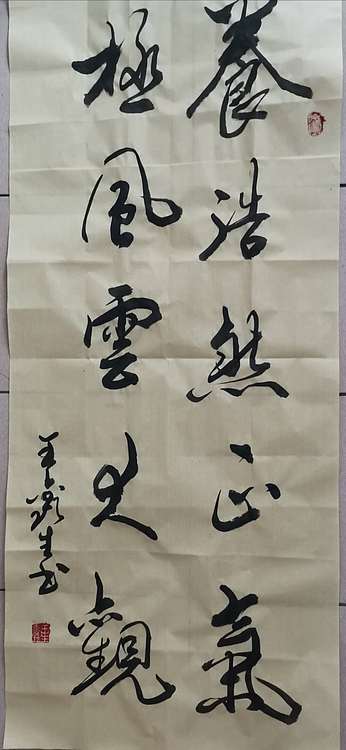 養浩然正氣
極風雲大觀
生书